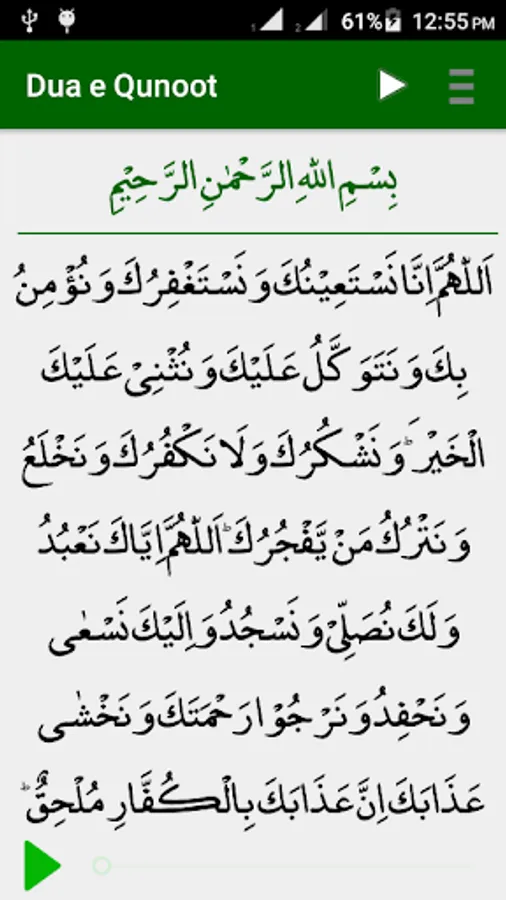 61% 12:55PM
Dua e Qunoot
بِسْمِ اللهِ الرَّحْمٰنِ الرَّحِيْمِ
اَللّٰهُمَّ اِنَّا نَسْتَعِيْنُكَ وَ نَسْتَغْفِرُكَ وَ نُؤْمِنُ
بِكَ وَ نَتَوَكَّلُ عَلَيْكَ وَ نُثْنِيْ عَلَيْكَ
الْخَيْرَ ؕ وَ نَشْكُرُكَ وَ لَا نَكْفُرُكَ وَ نَخْلَعُ
وَ نَتْرُكُ مَنْ يَّفْجُرُكَ ؕ اَللّٰهُمَّ اِيَّاكَ نَعْبُدُ
وَ لَكَ نُصَلِّيْ وَ نَسْجُدُ وَ اِلَيْكَ نَسْعٰى
وَ نَحْفِدُ وَ نَرْجُوْا رَحْمَتَكَ وَ نَخْشٰى
عَذَابَكَ اِنَّ عَذَابَكَ بِالْكُفَّارِ مُلْحِقٌ ؕ